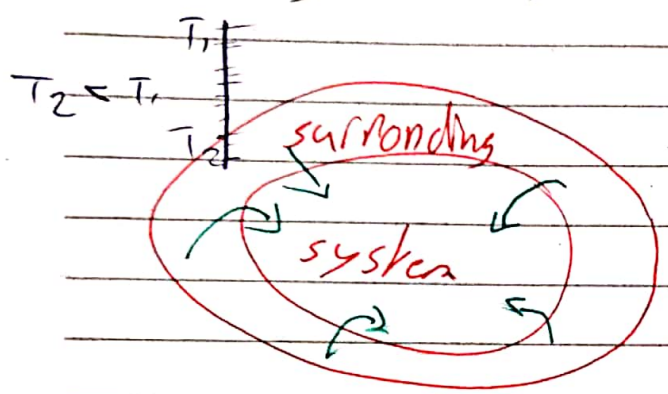 T₁
T₂ < T₁
T₂
surronding
system